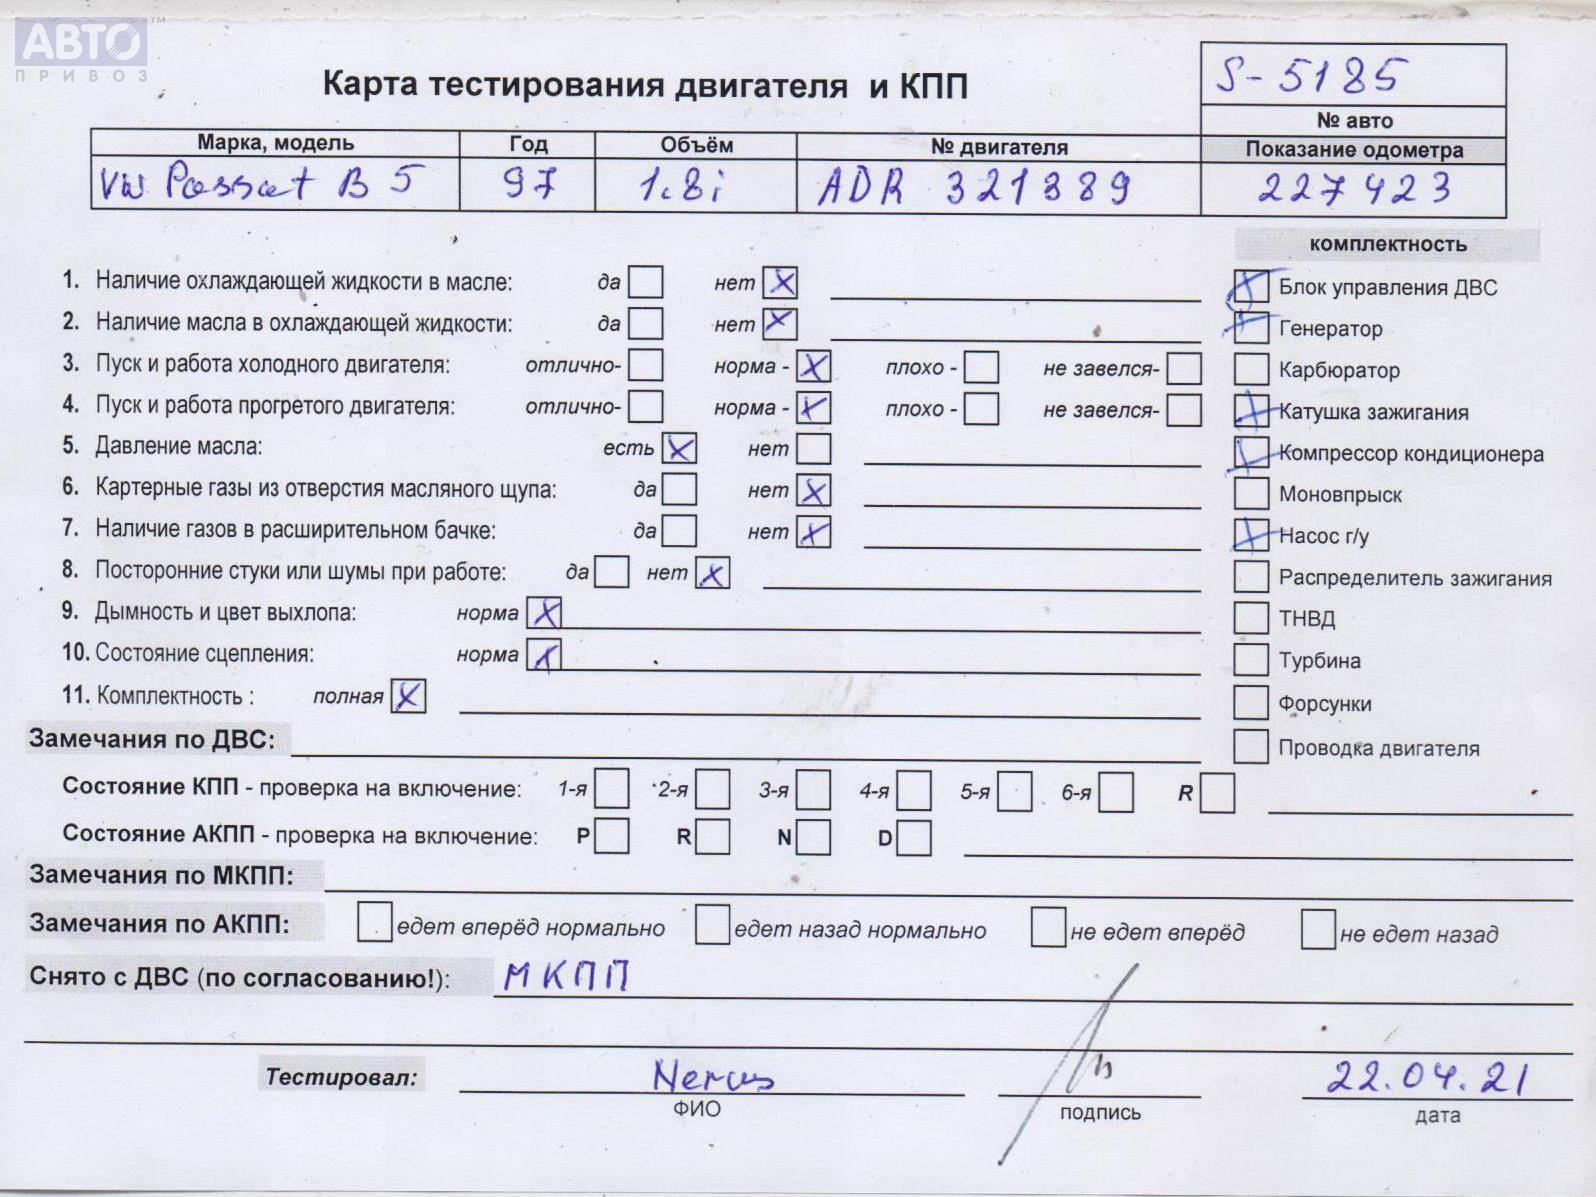 АВТО ™
ПРИВОЗ
Карта тестирования двигателя и КПП
S-5185
№ авто
Марка, модель Год Объём № двигателя Показание одометра
VW Passat B5 97 1.8i ADR 321389 227423
комплектность
1. Наличие охлаждающей жидкости в масле: да нет X
Блок управления ДВС
2. Наличие масла в охлаждающей жидкости: да нет X
Генератор
3. Пуск и работа холодного двигателя: отлично- норма - X плохо - не завелся-
Карбюратор
4. Пуск и работа прогретого двигателя: отлично- норма - X плохо - не завелся-
Катушка зажигания
5. Давление масла: есть X нет
Компрессор кондиционера
6. Картерные газы из отверстия масляного щупа: да нет X
Моновпрыск
7. Наличие газов в расширительном бачке: да нет X
Насос г/у
8. Посторонние стуки или шумы при работе: да нет X
Распределитель зажигания
9. Дымность и цвет выхлопа: норма X
ТНВД
10. Состояние сцепления: норма X
Турбина
11. Комплектность : полная X
Форсунки
Замечания по ДВС:
Проводка двигателя
Состояние КПП - проверка на включение: 1-я 2-я 3-я 4-я 5-я 6-я R
Состояние АКПП - проверка на включение: P R N D
Замечания по МКПП:
Замечания по АКПП: едет вперёд нормально едет назад нормально не едет вперёд не едет назад
Снято с ДВС (по согласованию!): МКПП
Тестировал: 22.04.21
ФИО подпись дата